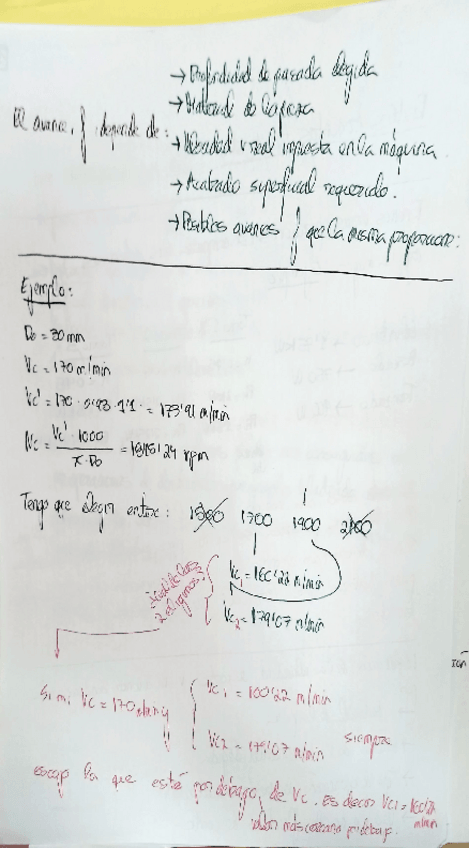 → Profundidad de pasada elegida
→ Material de la pieza
El avance, f depende de: → Velocidad v real impuesta en la máquina.
→ Acabado superficial requerido.
→ Posibles avances f que la misma proporciona:
Ejemplo:
Do = 30 mm
Vc = 170 m/min
Vc' = 170 · 0'93 · 1'1 = 173'91 m/min
Nc = Vc' · 1000 / π · Do = 1845'24 rpm
Tengo que elegir entre: 1500 1700 1900 2100
Vc1 = 160'22 m/min
Vc2 = 179'07 m/min
Si mi Vc = 170 m/min y
Vc1 = 160'22 m/min
Vc2 = 179'07 m/min siempre
escojo la que esté por debajo, de Vc. Es decir Vc1 = 160'22 m/min
valor más cercano por debajo.